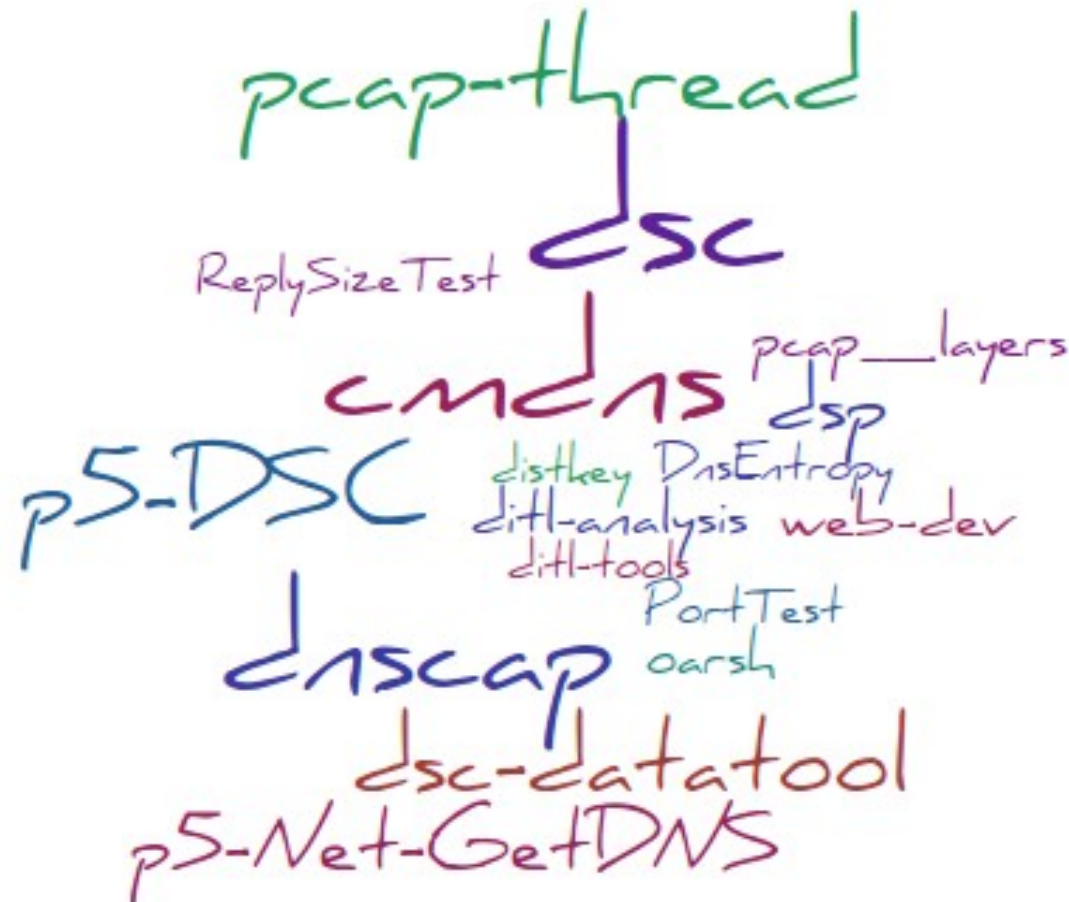 pcap-thread
dsc
ReplySizeTest
pcap__layers
cmdns
dsp
p5-DSC
distkey DnsEntropy
ditl-analysis web-dev
ditl-tools
PortTest
dnscap oarsh
dsc-datatool
p5-Net-GetDNS